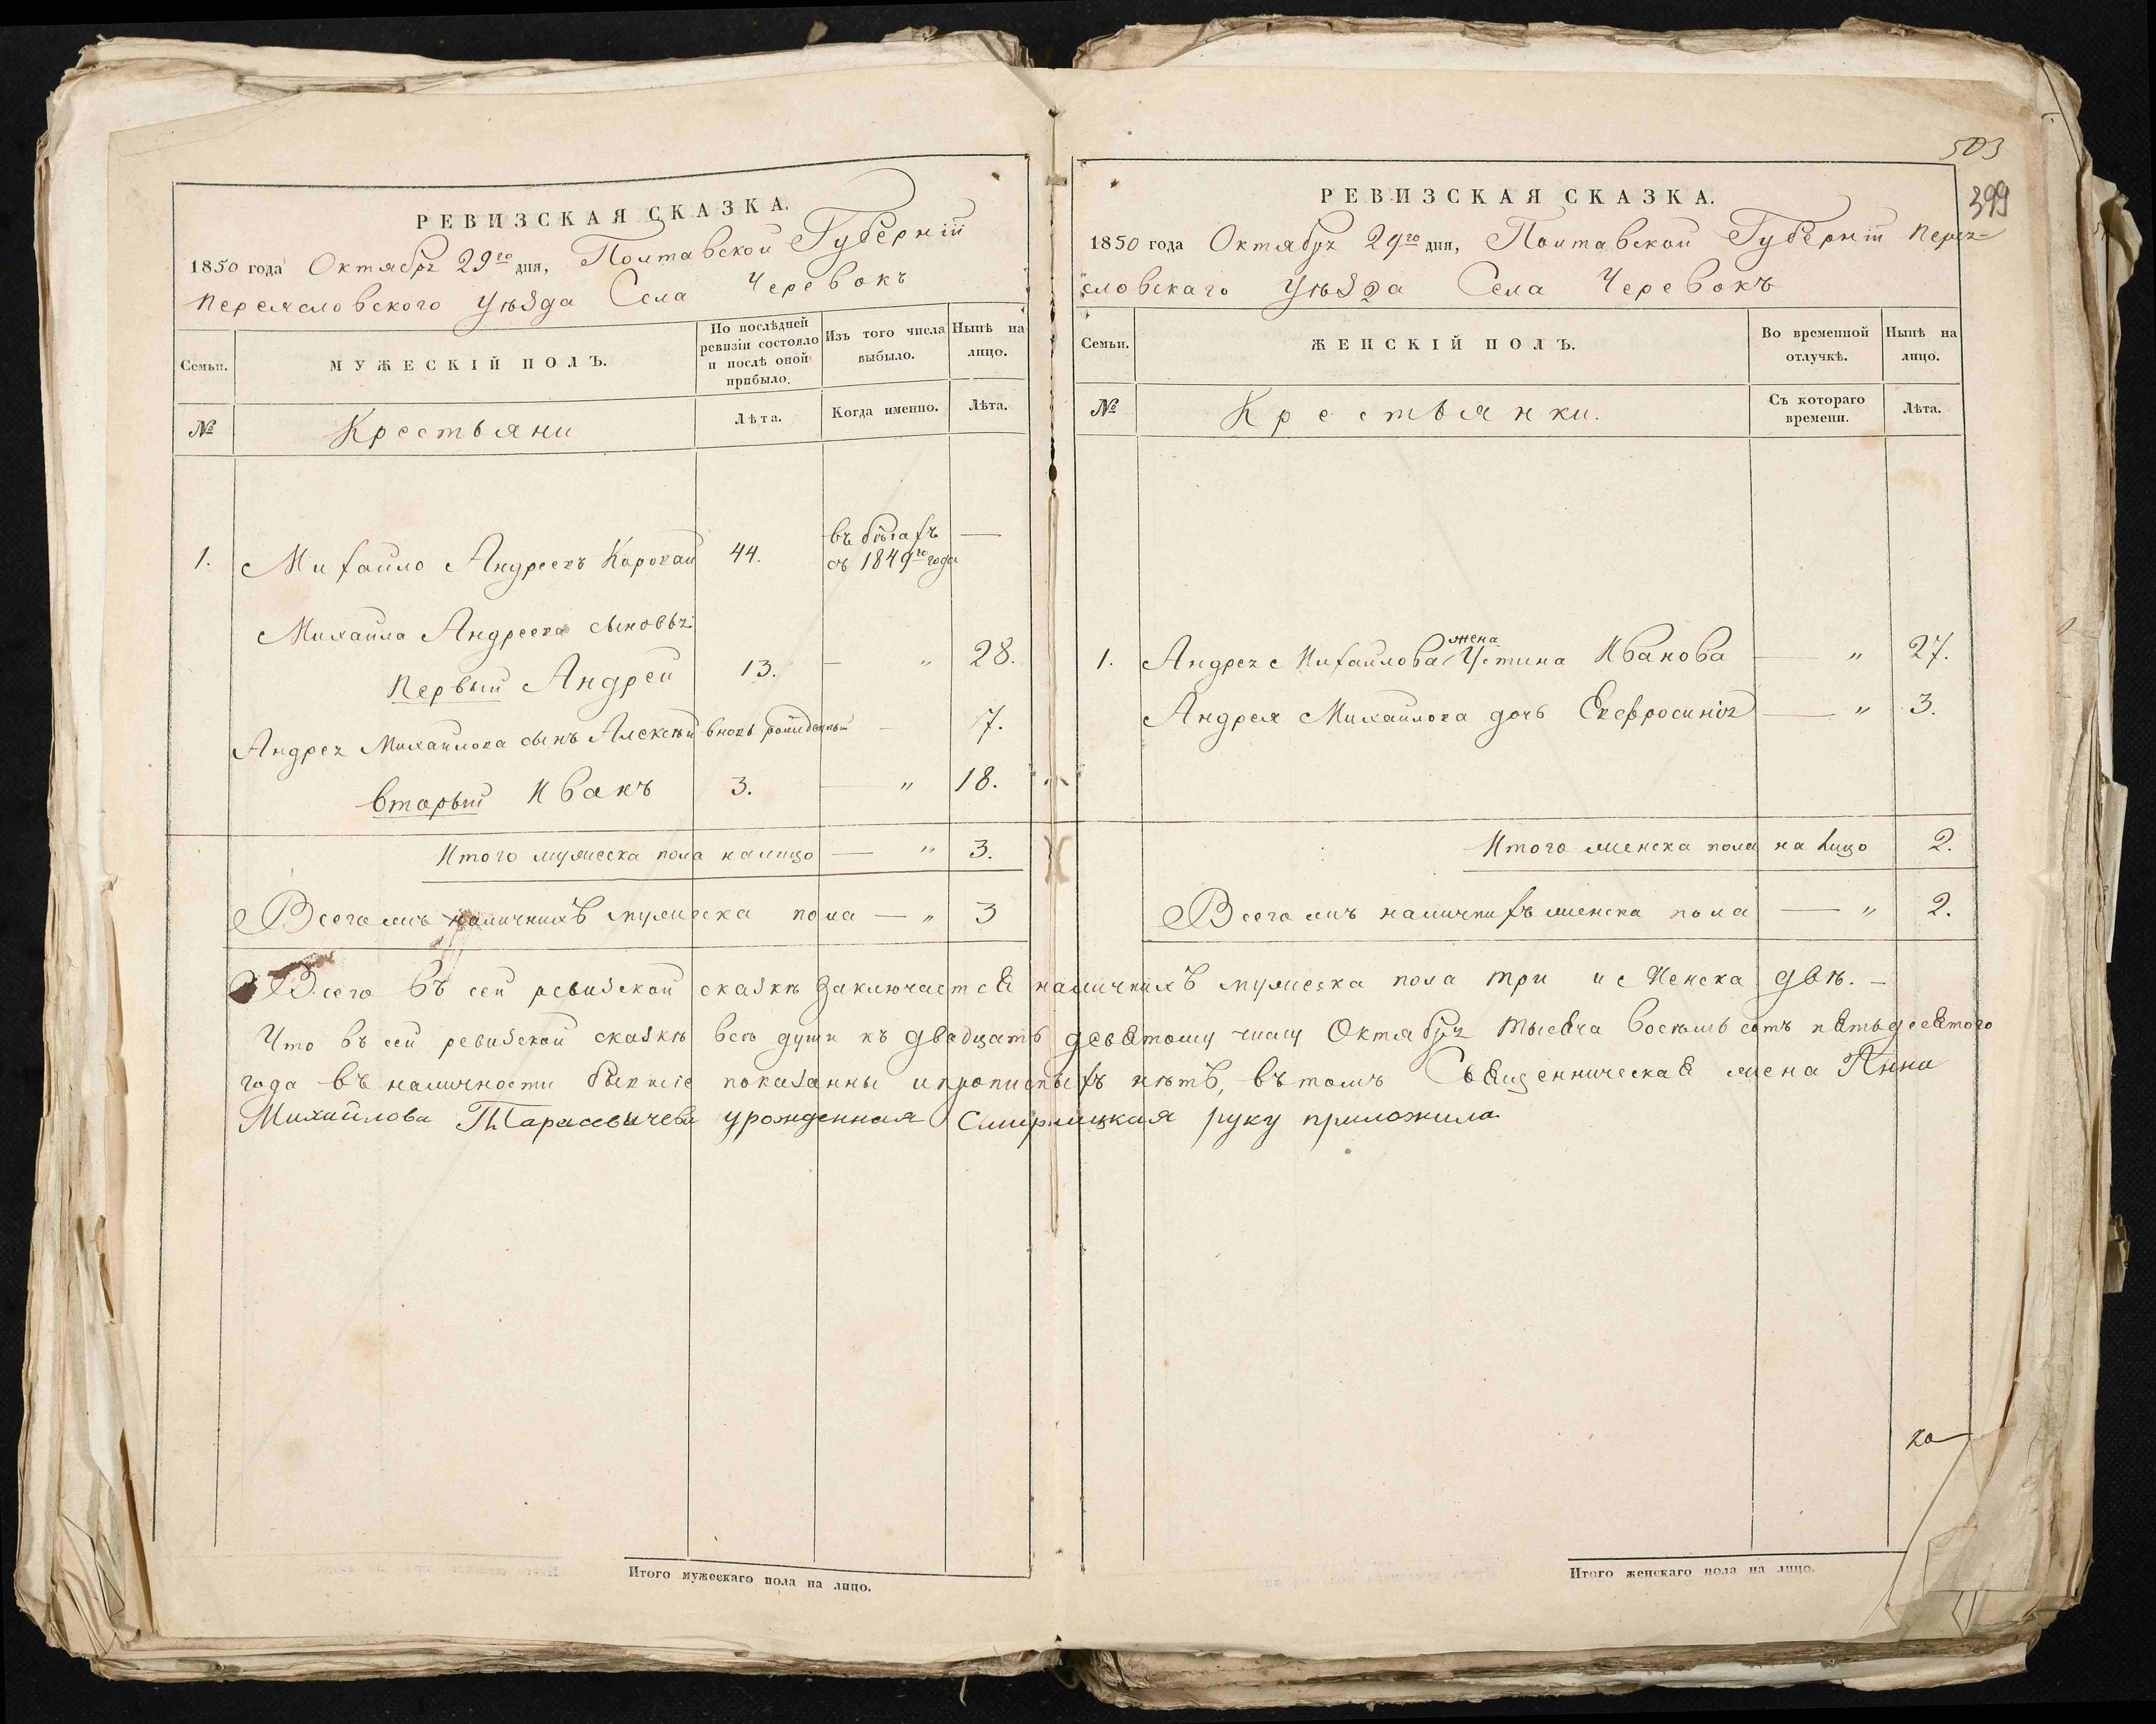 503
399
РЕВИЗСКАЯ СКАЗКА.
1850 года Октября 29го дня, Полтавской Губерніи
Переясловского Уѣзда Села Черевокъ
Семьи.
МУЖЕСКІЙ ПОЛЪ.
По послѣдней ревизіи состояло и послѣ оной прибыло.
Изъ того числа выбыло.
Нынѣ на лицо.
№
Крестьяни
Лѣта.
Когда именно.
Лѣта.
1. Михайло Андреевъ 44. въ бѣгахъ съ 1849го года —
Михайла Андреева сыновья
Первый Андрей 13. — „ 28.
Андрея Михайлова сынъ Алексѣй вновь рожденный — 7.
Вторый Иванъ 3. — „ 18.
Итого мужеска пола налицо — „ 3.
Всего наличнихъ мужеска пола — „ 3
РЕВИЗСКАЯ СКАЗКА.
1850 года Октября 29го дня, Полтавской Губерніи Перея-
словскаго Уѣзда Села Черевокъ
Семьи.
ЖЕНСКІЙ ПОЛЪ.
Во временной отлучкѣ.
Нынѣ на лицо.
№
Крестьянки.
Съ котораго времени.
Лѣта.
1. Андрея Михайлова жена Устина Иванова — „ 27.
Андрея Михайлова дочь Евфросинія — „ 3.
Итого женска пола на лицо 2.
Всего наличнихъ женска пола — „ 2.
Всего въ сей ревизской сказкѣ заключается наличнихъ мужеска пола три и женска двѣ. —
Что въ сей ревизской сказкѣ всѣ души къ двадцать девятому числу Октября тысяча восемь сотъ пятьдесятого
года въ наличности бывшіе показанны и прописныхъ нѣтъ, въ томъ Священническая жена Анна
Михайлова Тарасевичева урожденная руку приложила
Итого мужескаго пола на лицо.
Итого женскаго пола на лицо.